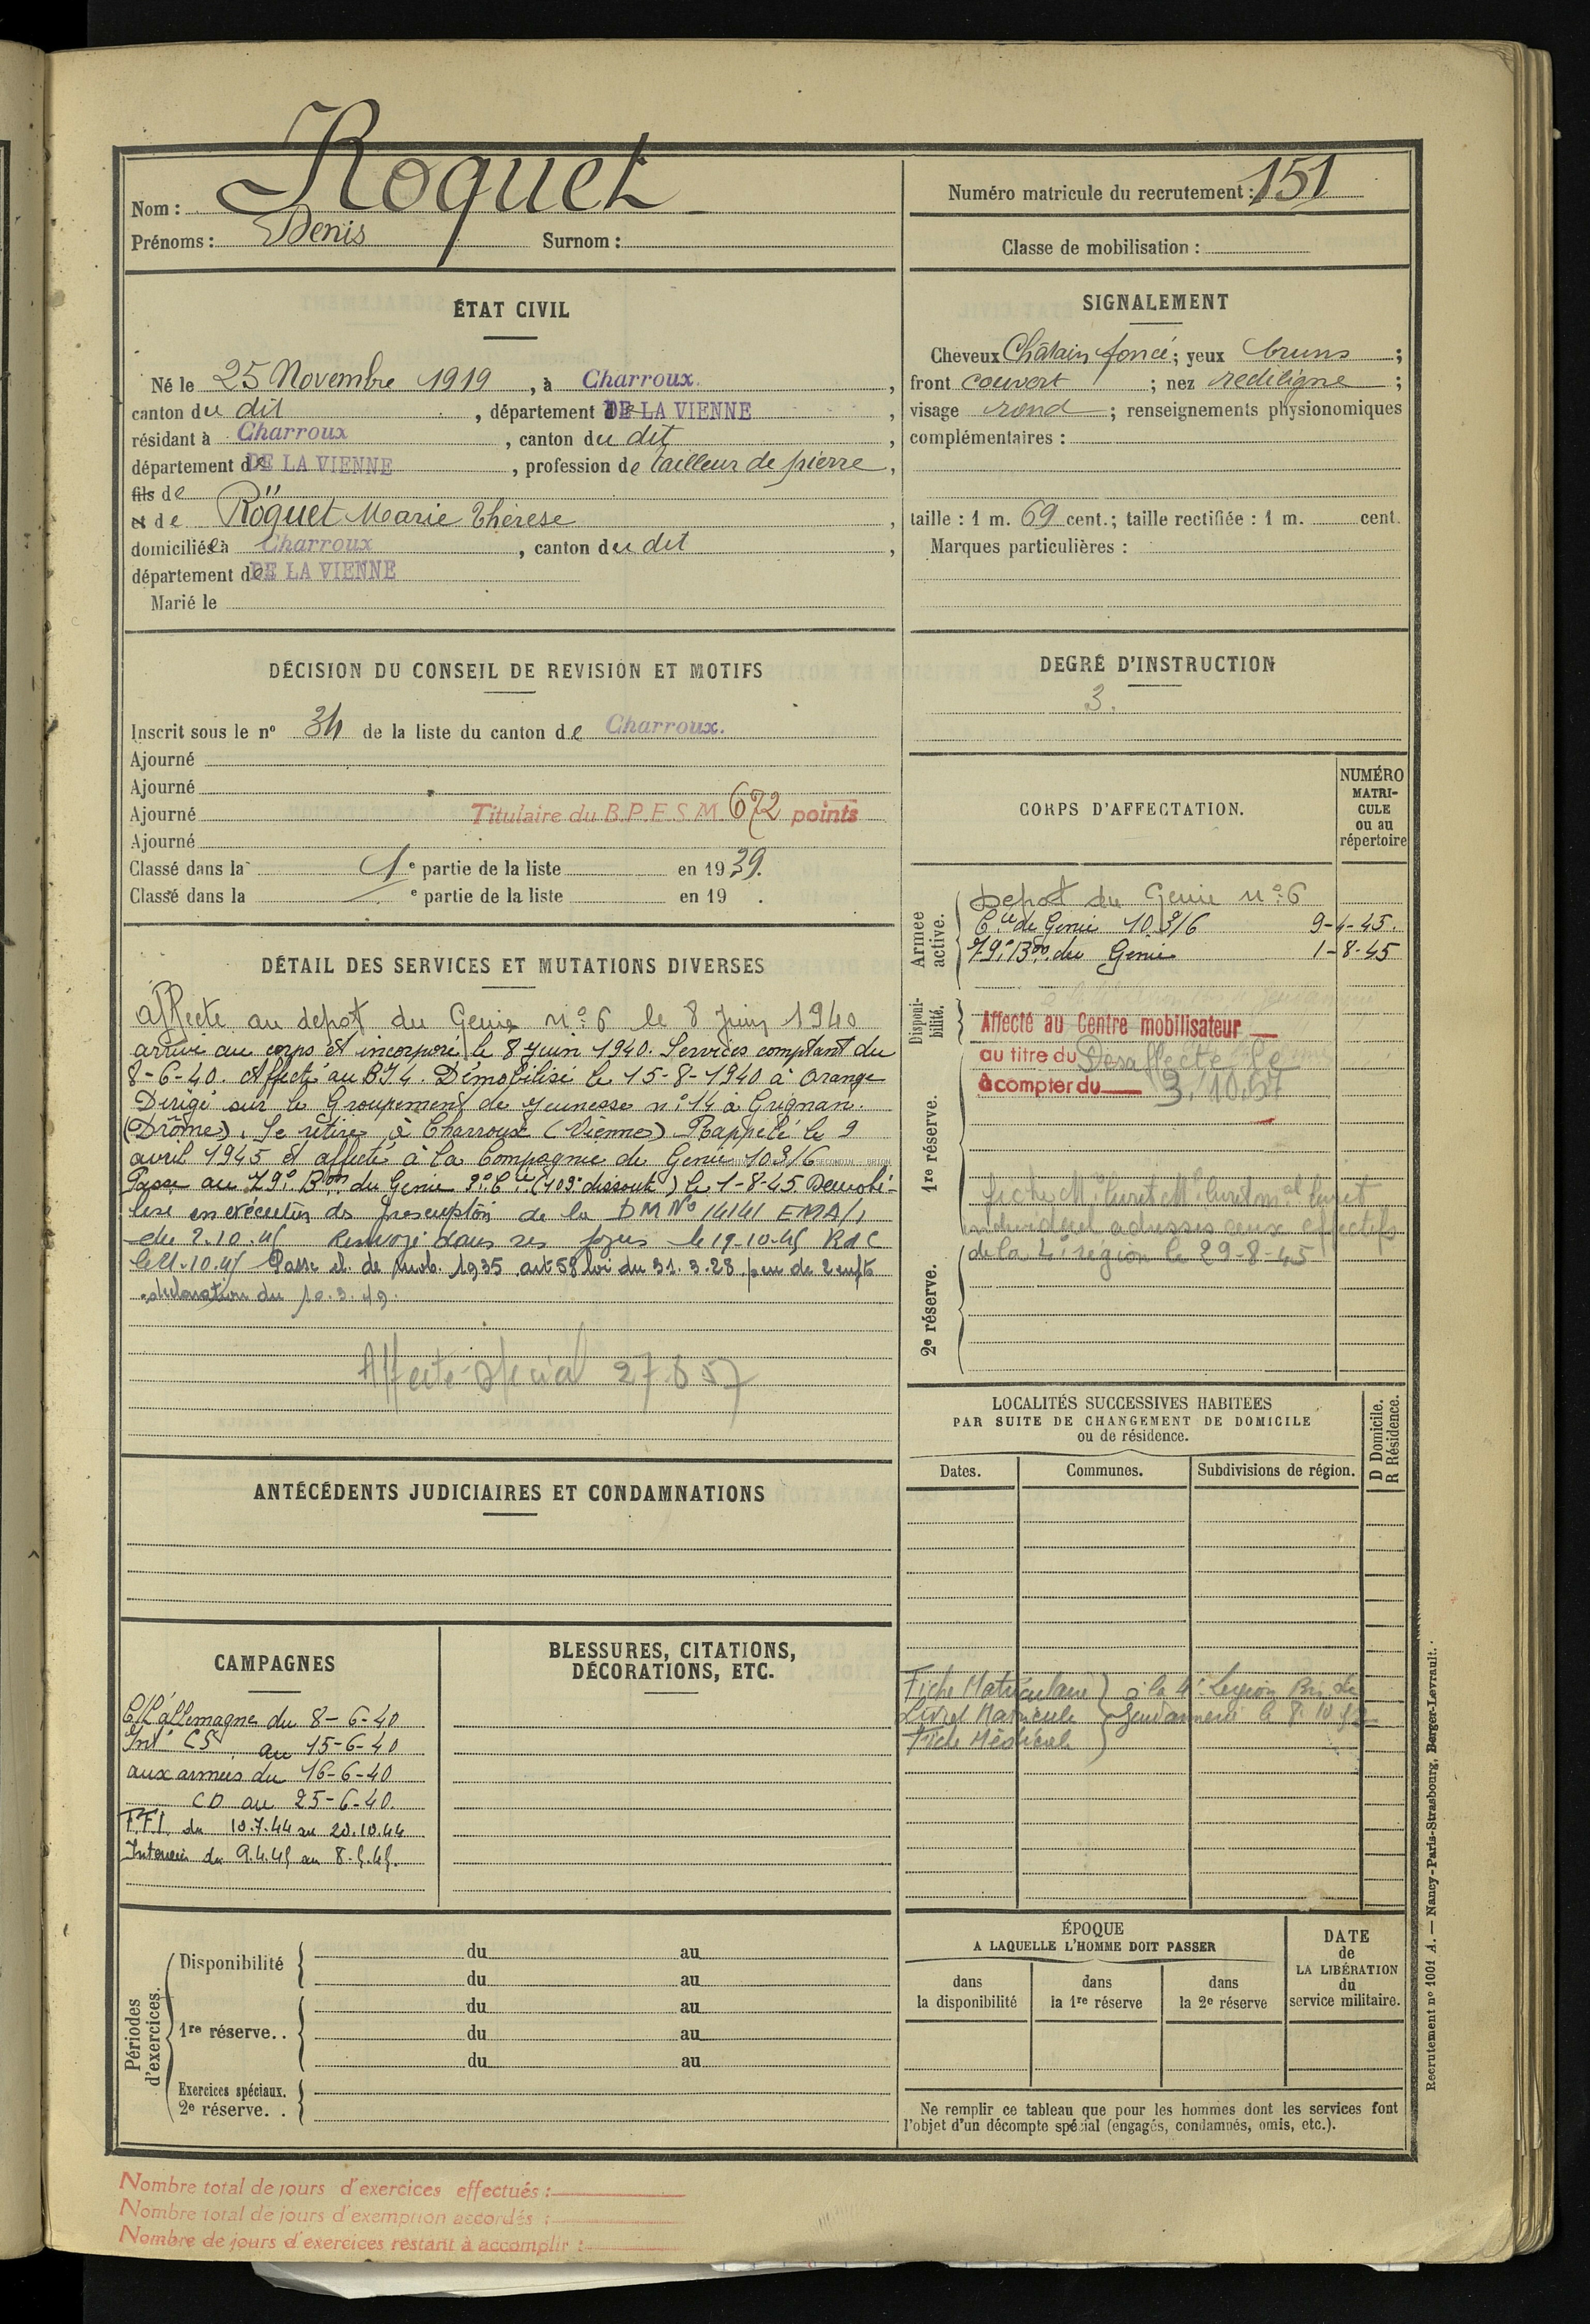 Nom : Roquet
Prénoms : Denis Surnom :
Numéro matricule du recrutement : 151
Classe de mobilisation :
ÉTAT CIVIL
Né le 25 Novembre 1919, à Charroux,
canton du dit, département DE LA VIENNE,
résidant à Charroux, canton du dit,
département de DE LA VIENNE, profession de tailleur de pierre,
fils de
et de Roquet Marie Thérèse,
domiciliée à Charroux, canton du dit,
département de DE LA VIENNE
Marié le
SIGNALEMENT
Cheveux Châtain foncé; yeux bruns;
front couvert; nez rectiligne;
visage rond; renseignements physionomiques
complémentaires :
taille : 1 m. 69 cent.; taille rectifiée : 1 m. cent.
Marques particulières :
DÉCISION DU CONSEIL DE REVISION ET MOTIFS
Inscrit sous le nº 34 de la liste du canton de Charroux.
Ajourné
Ajourné
Ajourné Titulaire du B.P.E.S.M. 672 points
Ajourné
Classé dans la 1e partie de la liste en 1939.
Classé dans la e partie de la liste en 19 .
DEGRÉ D'INSTRUCTION
3.
CORPS D'AFFECTATION.
NUMÉRO
MATRI-
CULE
ou au
répertoire
Armée active.
Depot du Genie nº 6
Cie de Genie 103/6 9-4-45.
79e Bon du Genie 1-8-45
Disponi-
bilité.
Affecté au Centre mobilisateur
au titre du Desaffecté le
à compter du 3.10.57
1re réserve.
individuel adresses aux effectifs
de la 4e région le 29-8-45
2e réserve.
DÉTAIL DES SERVICES ET MUTATIONS DIVERSES
affecte au depot du Genie nº 6 le 8 Juin 1940
arrivé au corps et incorporé le 8 Juin 1940. Services comptant du
8-6-40. Affecté au BI4. Démobilisé le 15-8-1940 à Orange
Dirigé sur le Groupement de Jeunesse nº 14 à Grignan.
(Drôme). Se retire à Charroux (Vienne) Rappelé le 9
avril 1945 et affecté à la Compagnie de Genie 103/6
Passe au 79e Bon du Genie 9e Cie (103e dissoute) le 1-8-45. Demobi-
lisé en exécution des prescription de la DM Nº 14141 EMA/1
du 2.10.45 Renvoyé dans ses foyers le 19-10-45 RdC
le 21.10.45 Passe cl. de mob. 1935 art 58 loi du 31.3.28 père de 2 enfts
déclaration du 10.3.49.
Affecté spécial 27.6.57
ANTÉCÉDENTS JUDICIAIRES ET CONDAMNATIONS
LOCALITÉS SUCCESSIVES HABITEES
PAR SUITE DE CHANGEMENT DE DOMICILE
ou de résidence.
D Domicile.
R Résidence.
Dates. Communes. Subdivisions de région.
Fiche Matriculaire à la 4e Legion
Livret Matricule Gendarmerie le 8.10.52
Fiche Médicale
CAMPAGNES
C/L'allemagne du 8-6-40
Int. CS au 15-6-40
aux armées du 16-6-40
CD au 25-6-40.
F.F.I. du 10.7.44 au 20.10.44
Interieur du 9.4.45 au 8.5.45.
BLESSURES, CITATIONS,
DÉCORATIONS, ETC.
Périodes
d'exercices.
Disponibilité du au
du au
1re réserve.. du au
du au
du au
Exercices spéciaux.
2e réserve. .
ÉPOQUE
A LAQUELLE L'HOMME DOIT PASSER
dans
la disponibilité
dans
la 1re réserve
dans
la 2e réserve
DATE
de
LA LIBÉRATION
du
service militaire.
Ne remplir ce tableau que pour les hommes dont les services font
l'objet d'un décompte spécial (engagés, condamnés, omis, etc.).
Recrutement nº 1001 A. — Nancy-Paris-Strasbourg, Berger-Levrault.
Nombre total de jours d'exercices effectués :
Nombre total de jours d'exemption accordés :
Nombre de jours d'exercices restant à accomplir :